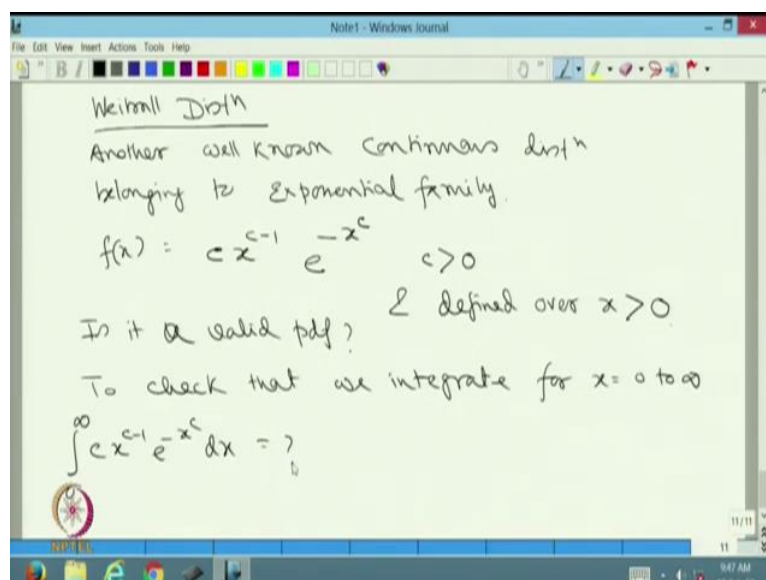 Note1 - Windows Journal
File Edit View Insert Actions Tools Help
Weibull Distn
Another well known continuous distn
belonging to Exponential family.
f(x) = c x^{c-1} e^{-x^c} c>0
& defined over x>0
Is it a valid pdf?
To check that we integrate for x= 0 to ∞
∫_0^∞ c x^{c-1} e^{-x^c} dx = ?
NPTEL
11/11
11
9:47 AM